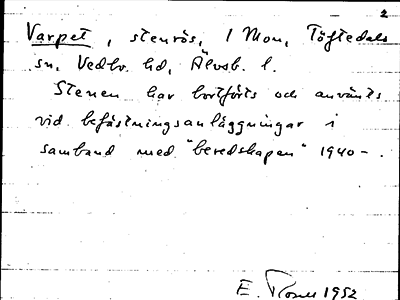 2
Varpet, stenrös, 1 Mon, Töftedals
sn, Vedbo hd, Älvsb. l.
Stenen har bortförts och använts
vid befästningsanläggningar i
samband med "beredskapen" 1940-.
E. 1952